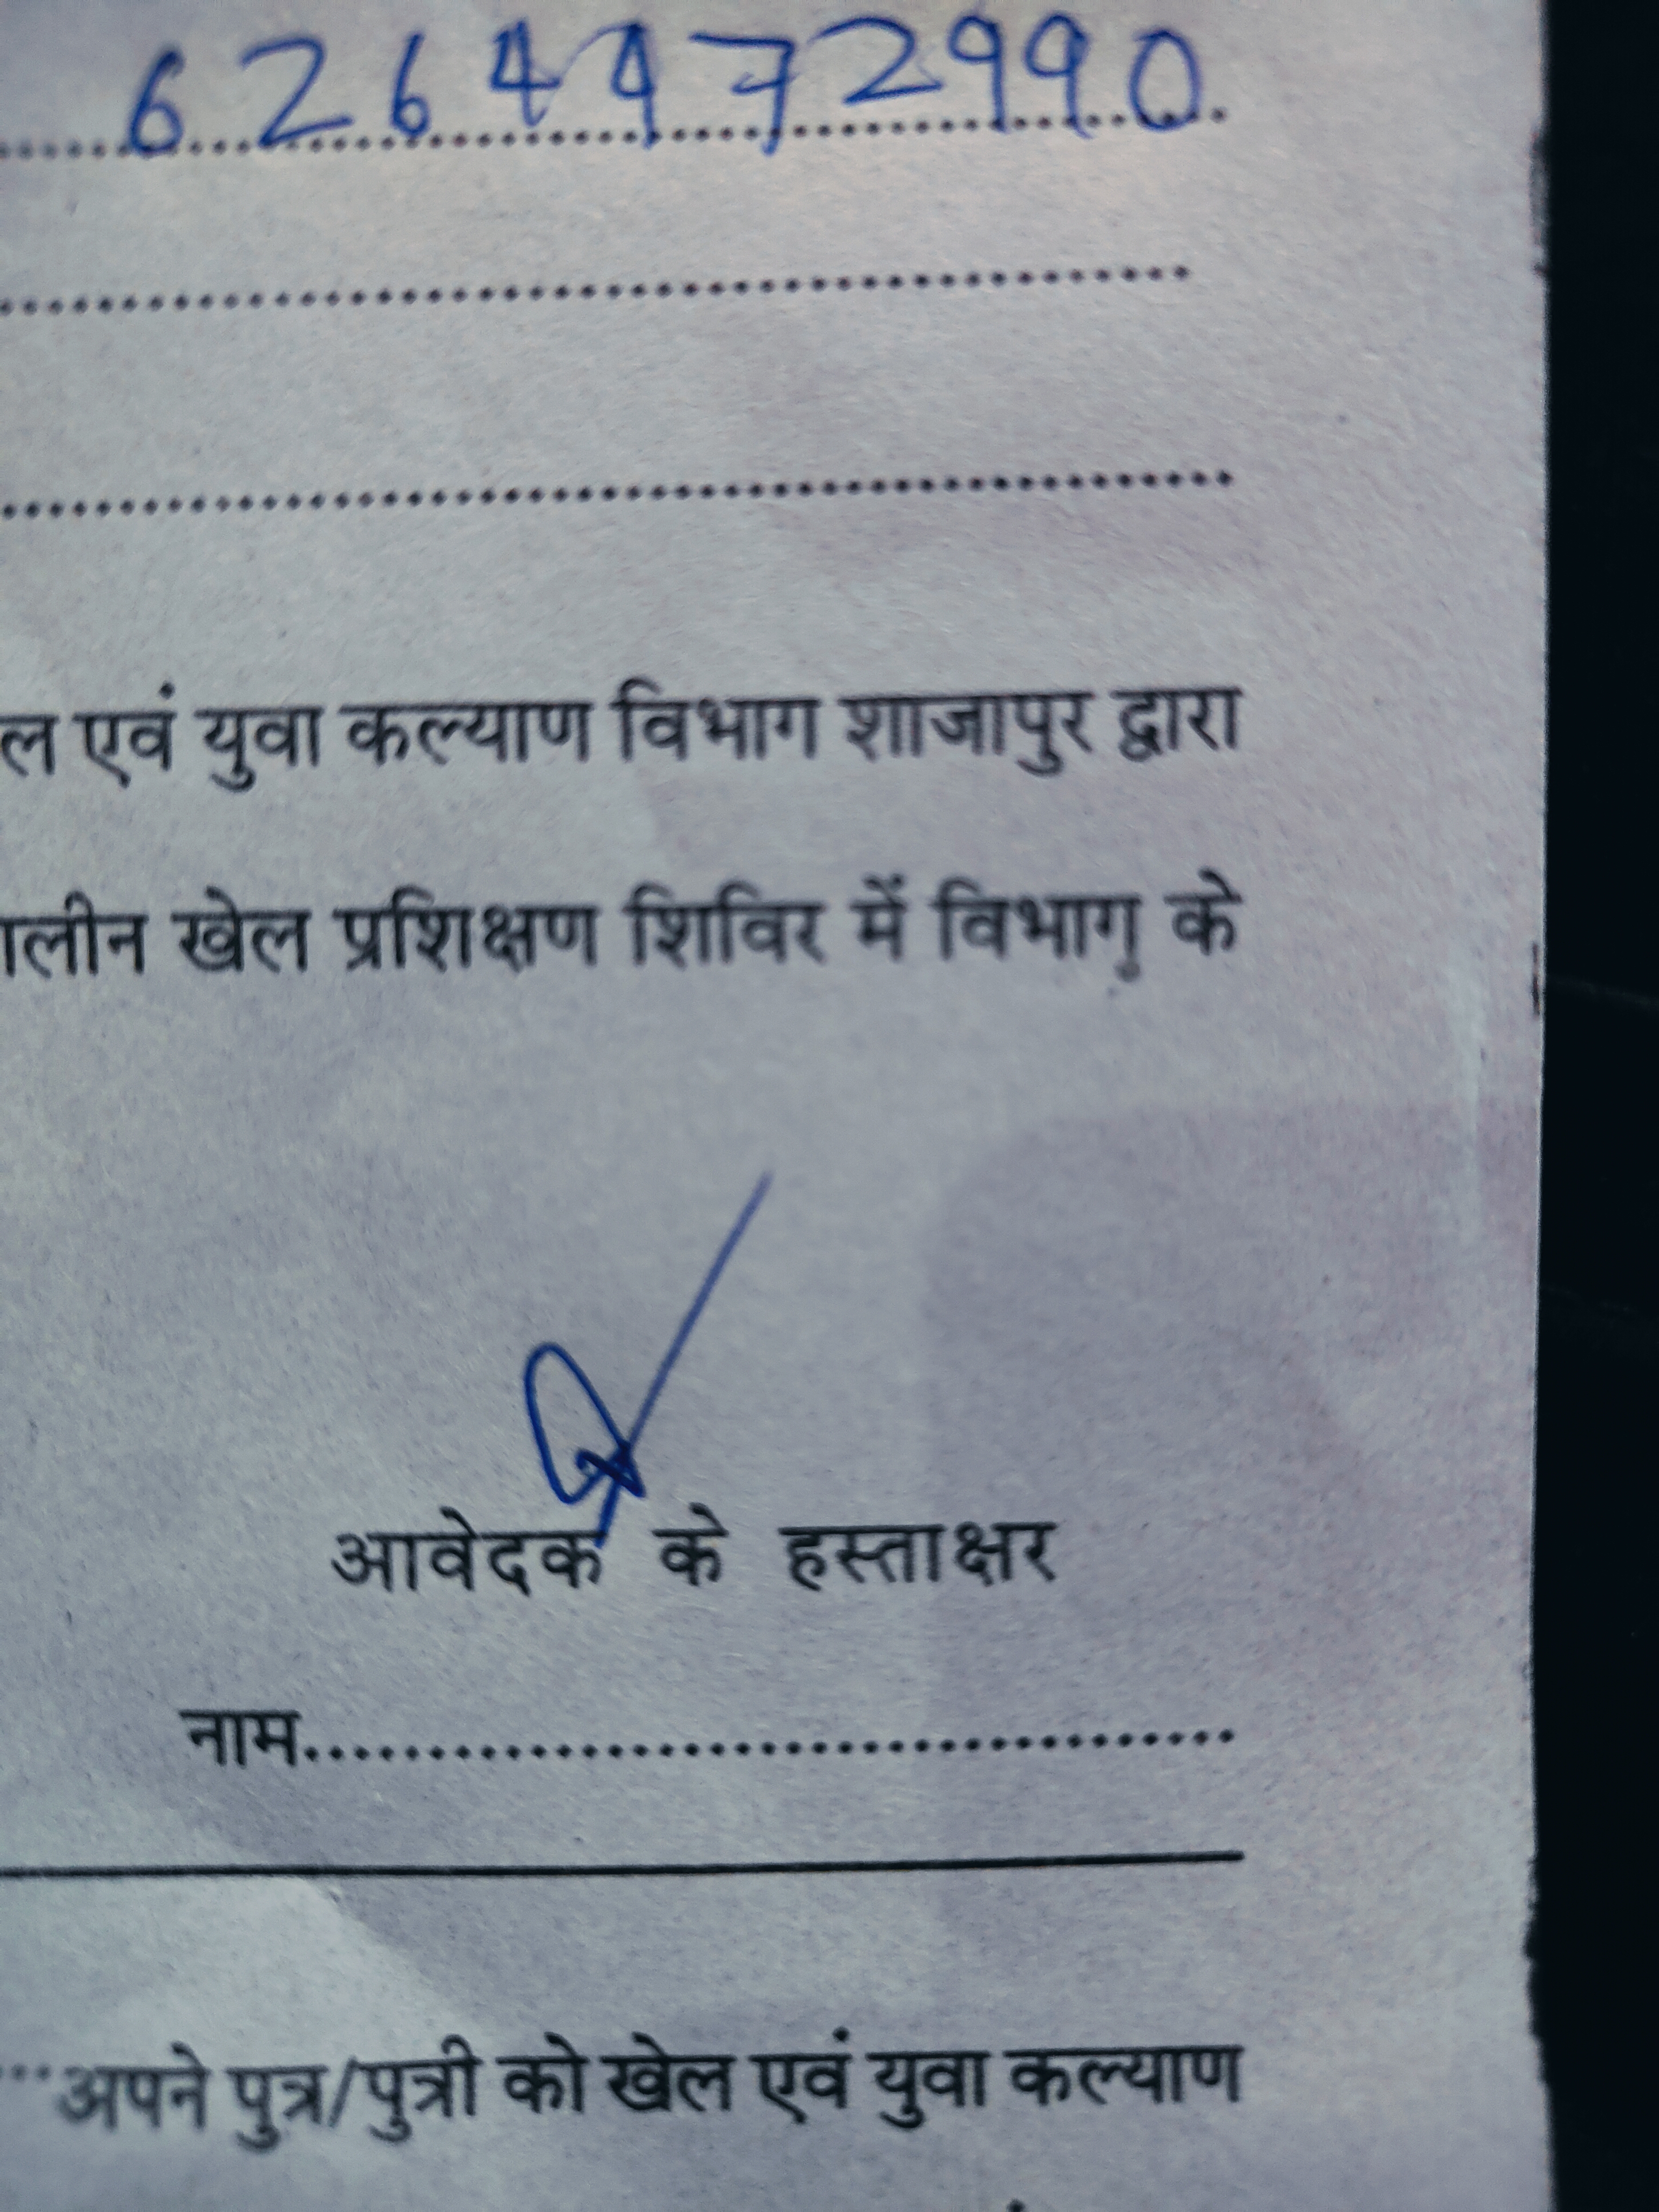 6264472990
ल एवं युवा कल्याण विभाग शाजापुर द्वारा
ालीन खेल प्रशिक्षण शिविर में विभाग के
आवेदक के हस्ताक्षर
नाम........................................
...अपने पुत्र/पुत्री को खेल एवं युवा कल्याण